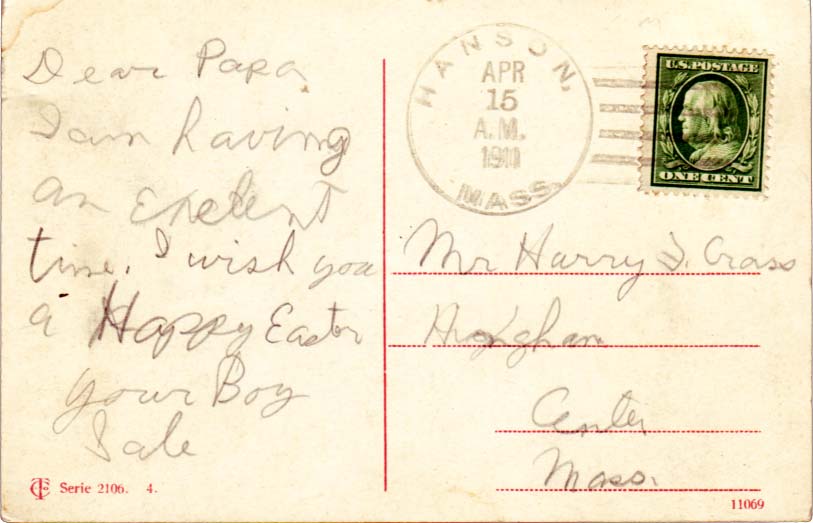 Dear Papa
I am having
an Exelent
time. I wish you
a Happy Easter
your Boy
Serie 2106. 4.
HANSON,
APR
15
A.M.
1911
MASS.
U.S. POSTAGE
ONE CENT
Mr Harry Cross
Center
Mass.
11069